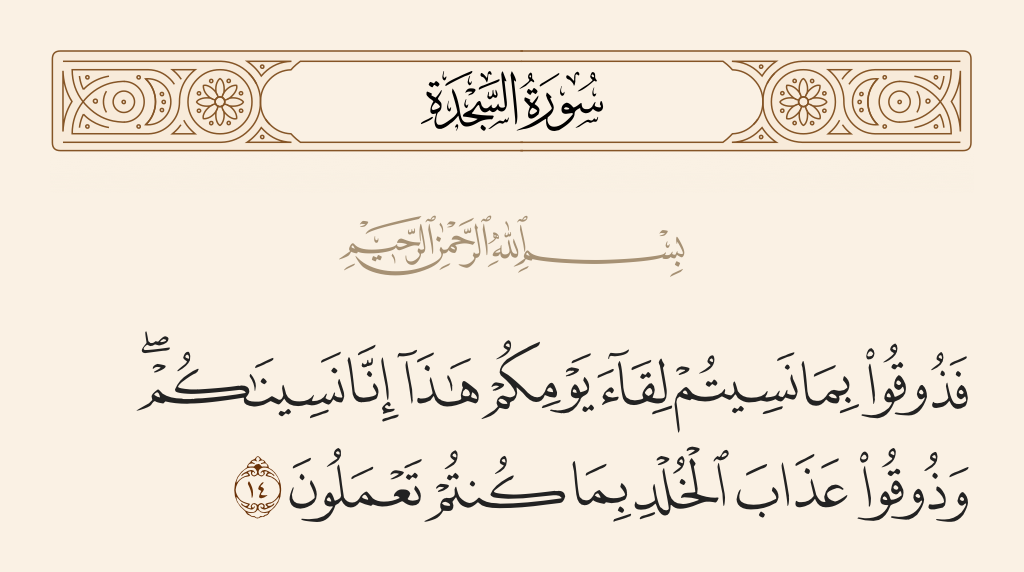 سُورَةُ السَّجْدَةِ
بِسْمِ ٱللَّهِ ٱلرَّحْمَٰنِ ٱلرَّحِيمِ
فَذُوقُوا۟ بِمَا نَسِيتُمْ لِقَآءَ يَوْمِكُمْ هَـٰذَآ إِنَّا نَسِينَـٰكُمْ ۖ
وَذُوقُوا۟ عَذَابَ ٱلْخُلْدِ بِمَا كُنتُمْ تَعْمَلُونَ ١٤